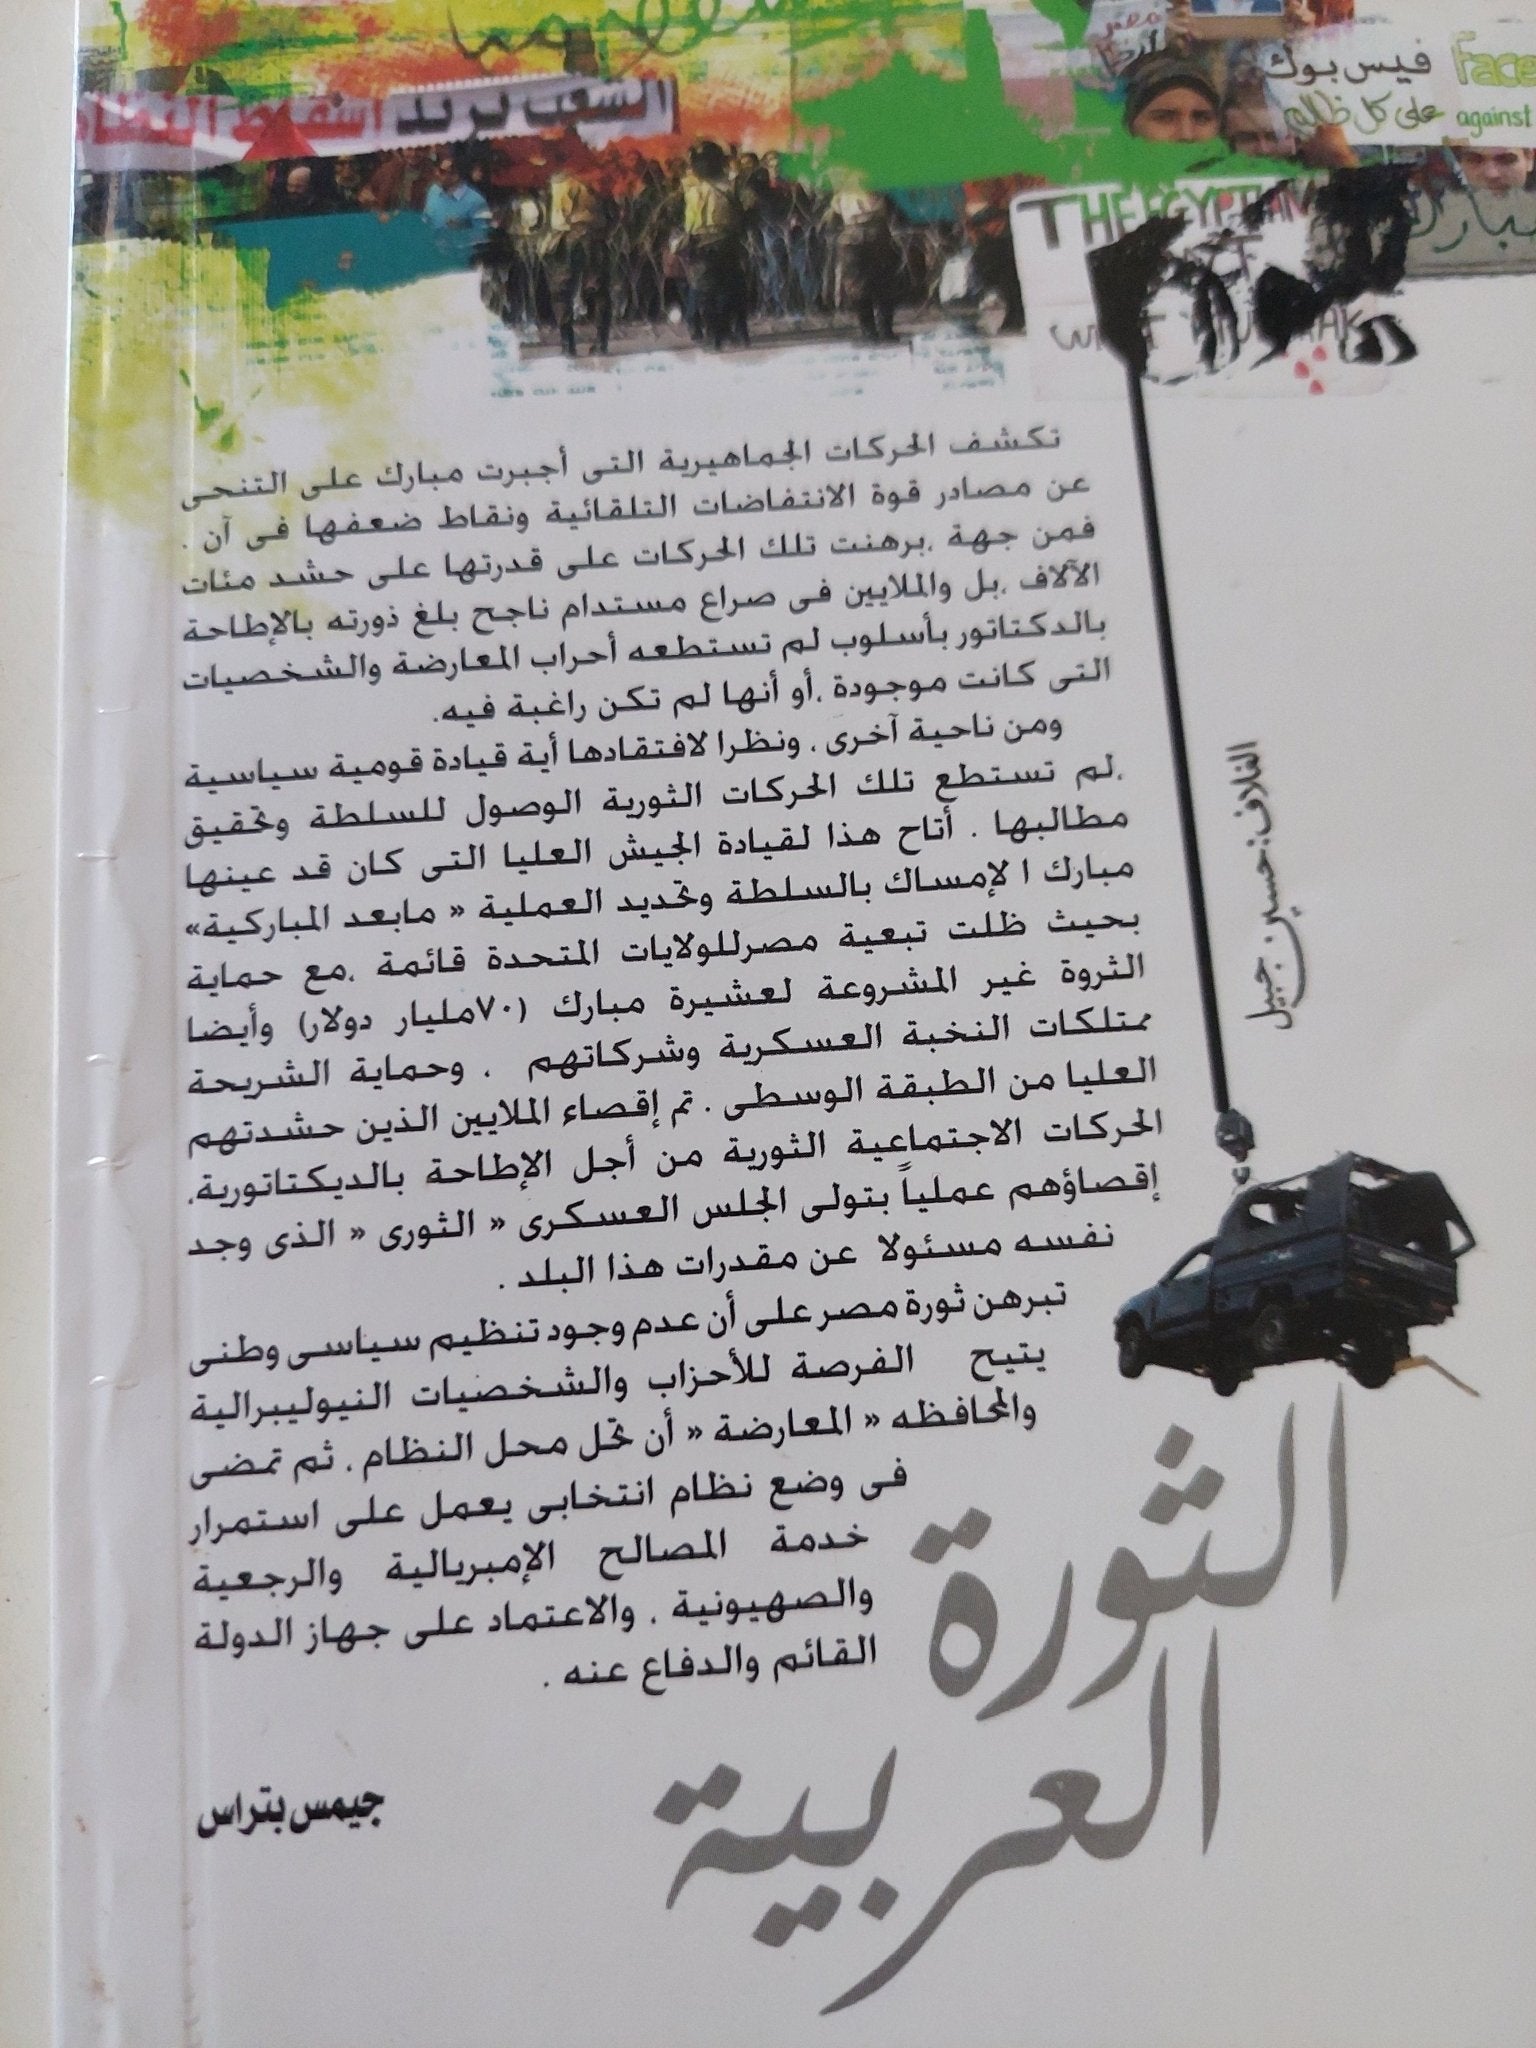 فيس بوك Face
على كل ظالم against
الشعب يريد إسقاط النظام
THE EGYPTIAN
مبارك
تكشف الحركات الجماهيرية التى أجبرت مبارك على التنحى
عن مصادر قوة الانتفاضات التلقائية ونقاط ضعفها فى آن .
فمن جهة ،برهنت تلك الحركات على قدرتها على حشد مئات
الآلاف ،بل والملايين فى صراع مستدام ناجح بلغ ذورته بالإطاحة
بالدكتاتور بأسلوب لم تستطعه أحراب المعارضة والشخصيات
التى كانت موجودة ،أو أنها لم تكن راغبة فيه.
ومن ناحية آخرى ، ونظرا لافتقادها أية قيادة قومية سياسية
،لم تستطع تلك الحركات الثورية الوصول للسلطة وتحقيق
مطالبها . أتاح هذا لقيادة الجيش العليا التى كان قد عينها
مبارك ا لإمساك بالسلطة وتحديد العملية « مابعد المباركية»
بحيث ظلت تبعية مصرللولايات المتحدة قائمة ،مع حماية
الثروة غير المشروعة لعشيرة مبارك (٧٠مليار دولار) وأيضا
ممتلكات النخبة العسكرية وشركاتهم ، وحماية الشريحة
العليا من الطبقة الوسطى . تم إقصاء الملايين الذين حشدتهم
الحركات الاجتماعية الثورية من أجل الإطاحة بالديكتاتورية،
إقصاؤهم عملياً بتولى المجلس العسكرى « الثورى « الذى وجد
نفسه مسئولا عن مقدرات هذا البلد .
تبرهن ثورة مصر على أن عدم وجود تنظيم سياسى وطنى
يتيح الفرصة للأحزاب والشخصيات النيوليبرالية
والمحافظه « المعارضة « أن تحل محل النظام ، ثم تمضى
فى وضع نظام انتخابى يعمل على استمرار
خدمة المصالح الإمبريالية والرجعية
والصهيونية ، والاعتماد على جهاز الدولة
القائم والدفاع عنه .
جيمس بتراس
الغلاف: حسين جبيل
الثورة
العربية